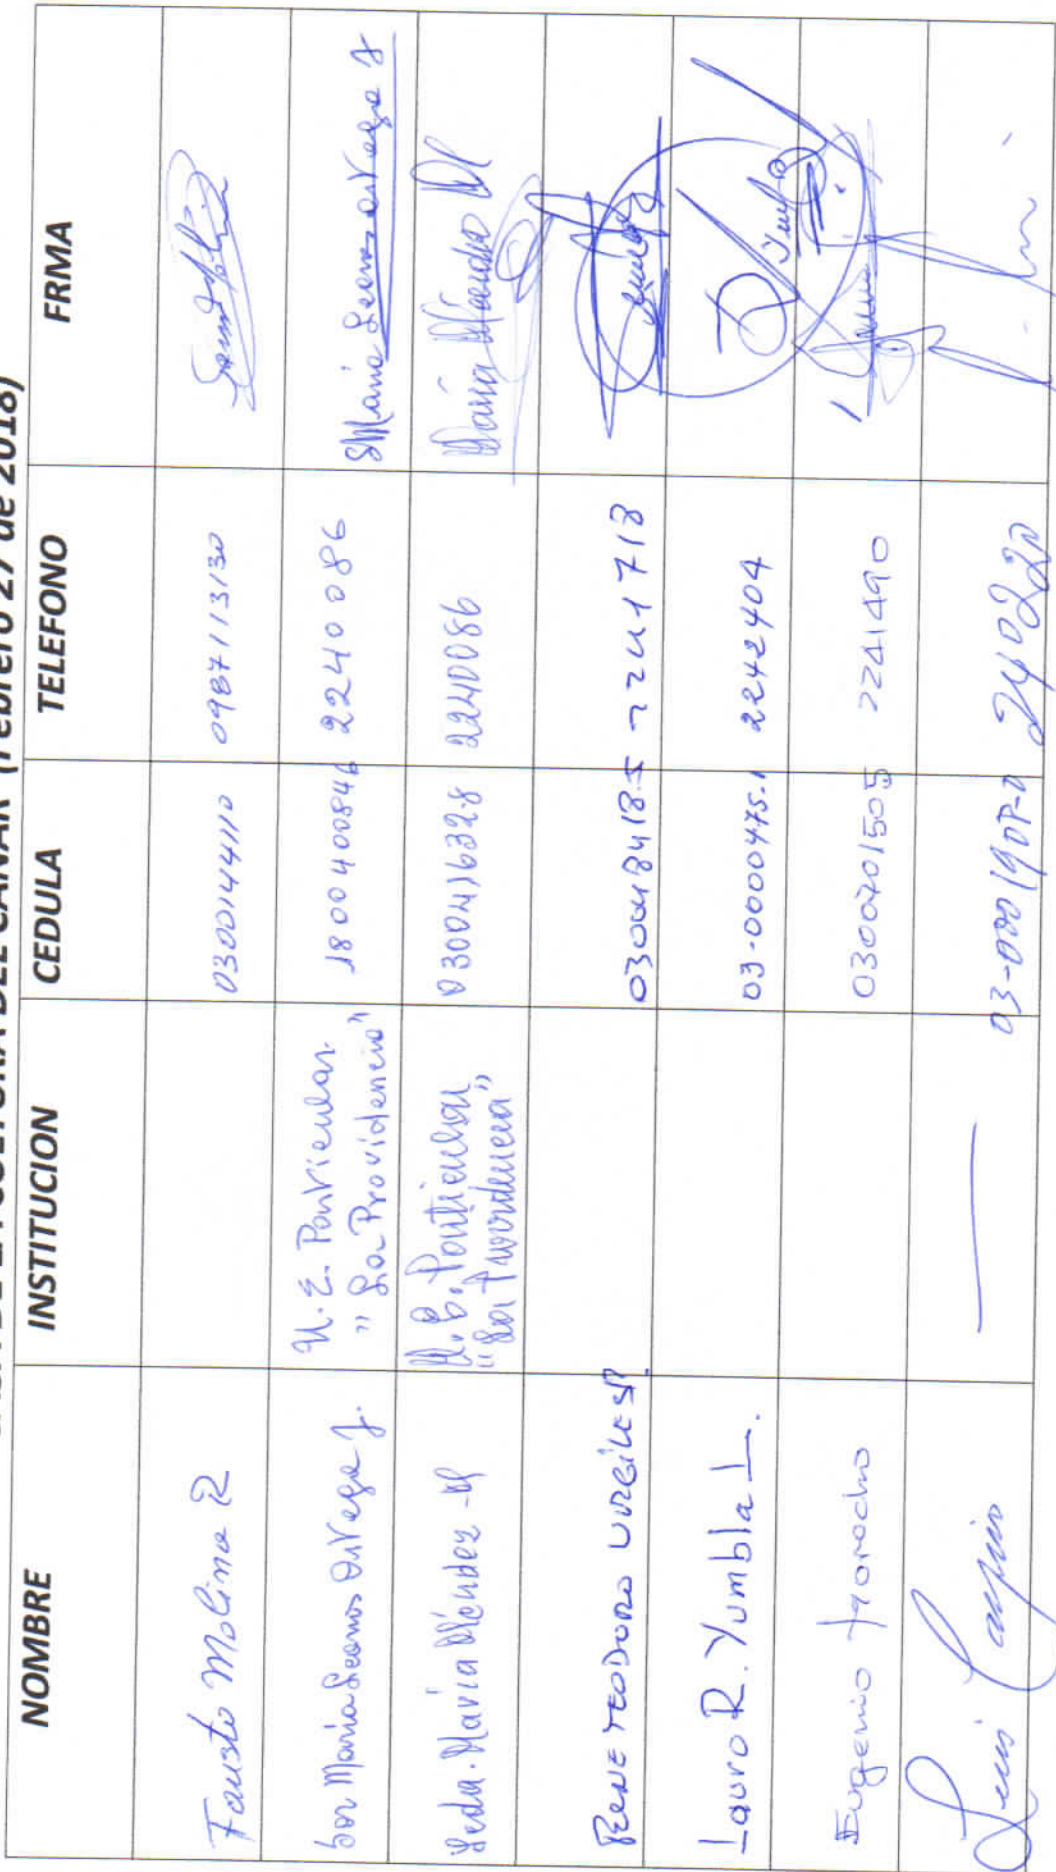 DEL CAÑAR (Febrero 27 de 2018)
NOMBRE INSTITUCION CEDULA TELEFONO FRMA
Fausto Molina R 0300144110 0987113130
Sor María Leonor Ortega J. U.E. Particular "La Providencia" 1800400846 2240086 SMaría Leonor Ortega J
Lcda. María Méndez M U.E. Particular "La Providencia" 030041632-8 2240086 María Méndez M
RENE TEODORO URGILES P. 030048418-5 2241713
Lauro R. Yumbla L. 03-0000475-1 2242404
Eugenio 0300201505 2241490
Luis Carpio — 2240220